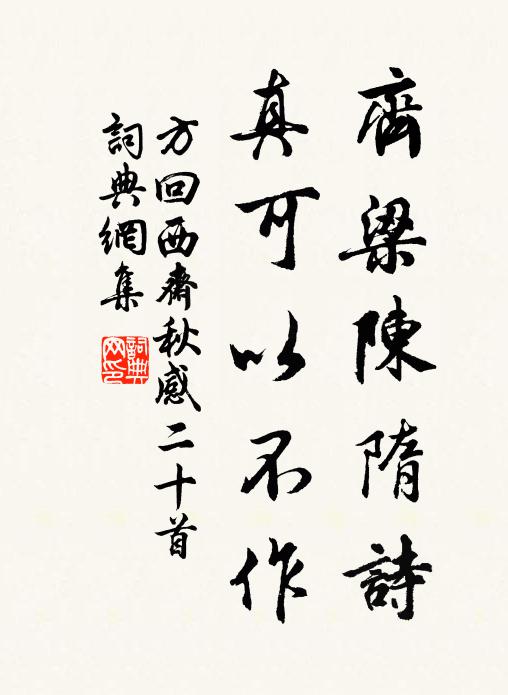 齊梁陳隋詩
真可以不作
方回西齋秋感二十首
詞典網集
詞典網印